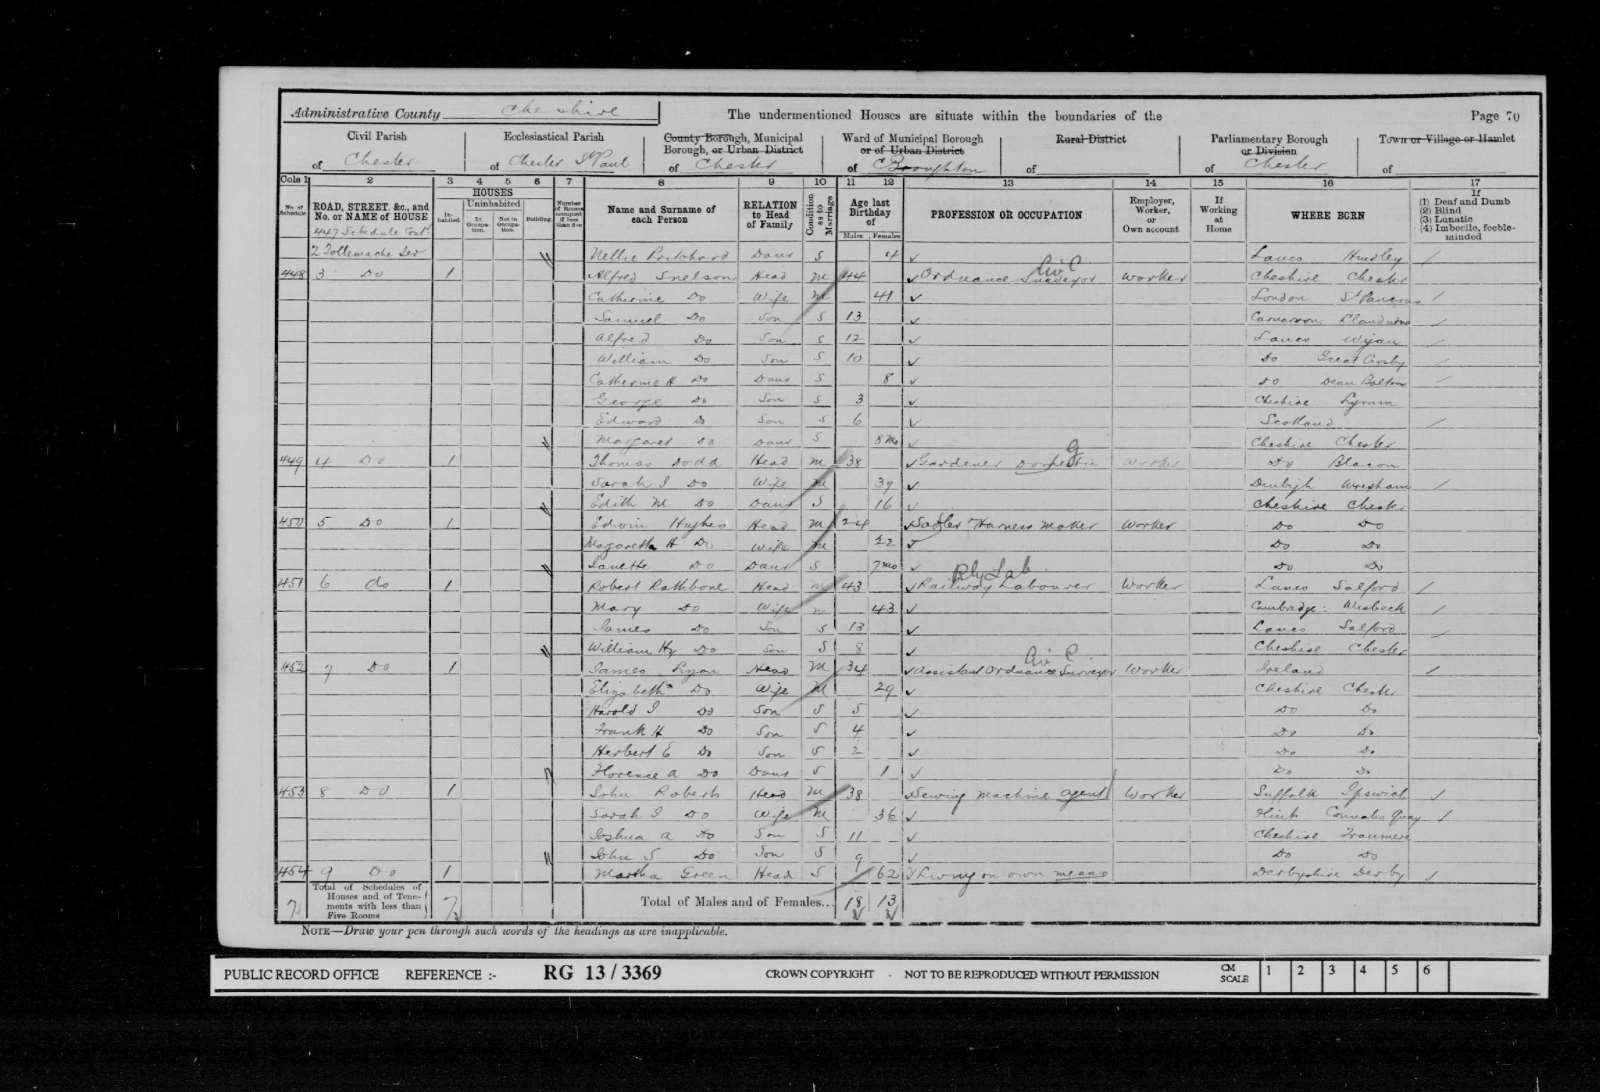 Administrative County Cheshire
The undermentioned Houses are situate within the boundaries of the
Page 70
Civil Parish of Chester
Ecclesiastical Parish of Chester St Paul
County Borough, Municipal Borough, or Urban District of Chester
Ward of Municipal Borough or of Urban District of Broughton
Rural District of
Parliamentary Borough or Division of Chester
Town or Village or Hamlet of
Cols 1 2 3 4 5 6 7 8 9 10 11 12 13 14 15 16 17
No. of Schedule
ROAD, STREET, &c., and No. or NAME of HOUSE
HOUSES
Inhabited
Uninhabited
In Occupation.
Not in Occupation.
Building
Number of Rooms occupied if less than five
Name and Surname of each Person
RELATION to Head of Family
Condition as to Marriage
Age last Birthday of
Males Females
PROFESSION OR OCCUPATION
Employer, Worker, or Own account
If Working at Home
WHERE BORN
If (1) Deaf and Dumb (2) Blind (3) Lunatic (4) Imbecile, feeble-minded
447 Schedule Contd
2 Tollemache Ter Nellie Pritchard Daur S 4 Lancs Hindley
448 3 Do 1 Alfred Snelson Head M 44 Ordnance Surveyor Worker Cheshire Chester
Catherine Do Wife M 41 London St Pancras
Samuel Do Son S 13 Carnarvon Llandudno
Alfred Do Son S 12 Lancs Wigan
William Do Son S 10 Do Great Crosby
Catherine H Do Daur S 8 Do Dean Bolton
George Do Son S 3 Cheshire Lymm
Edward Do Son S 6 Scotland
Margaret Do Daur S 8 mo Cheshire Chester
449 4 Do 1 Thomas Dodd Head M 38 Gardener Domestic G Worker Do Blacon
Sarah J Do Wife M 39 Denbigh Wrexham
Edith M Do Daur S 16 Cheshire Chester
450 5 Do 1 Edwin Hughes Head M 24 Sadler Harness Maker Worker Do Do
Magaretta H Do Wife M 22 Do Do
Do Daur S 7 mo Do Do
451 6 do 1 Robert Rathbone Head M 43 Railway Labourer Rly Lab Worker Lancs Salford
Mary Do Wife M 43 Cambridge: Wisbech
James Do Son S 13 Lancs Salford
William Hy Do Son S 8 Cheshire Chester
452 7 Do 1 James Ryan Head M 34 Assistant Ordnance Surveyor Worker Ireland
Elizabeth Do Wife M 29 Cheshire Chester
Harold J Do Son S 5 Do Do
Frank H Do Son S 4 Do Do
Herbert E Do Son S 2 Do Do
Florence A Do Daur S 1 Do Do
453 8 Do 1 John Roberts Head M 38 Sewing Machine Agent Worker Suffolk Ipswich
Sarah J Do Wife M 36 Flint Connahs Quay
Joshua A Do Son S 11 Cheshire Tranmere
John S Do Son S 9 Do Do
454 9 Do 1 Martha Green Head S 62 Living on own means Derbyshire Derby
7 Total of Schedules of Houses and of Tenements with less than Five Rooms 7
Total of Males and of Females... 18 13
NOTE—Draw your pen through such words of the headings as are inapplicable.
PUBLIC RECORD OFFICE REFERENCE :- RG 13 / 3369 CROWN COPYRIGHT - NOT TO BE REPRODUCED WITHOUT PERMISSION CM SCALE 1 2 3 4 5 6